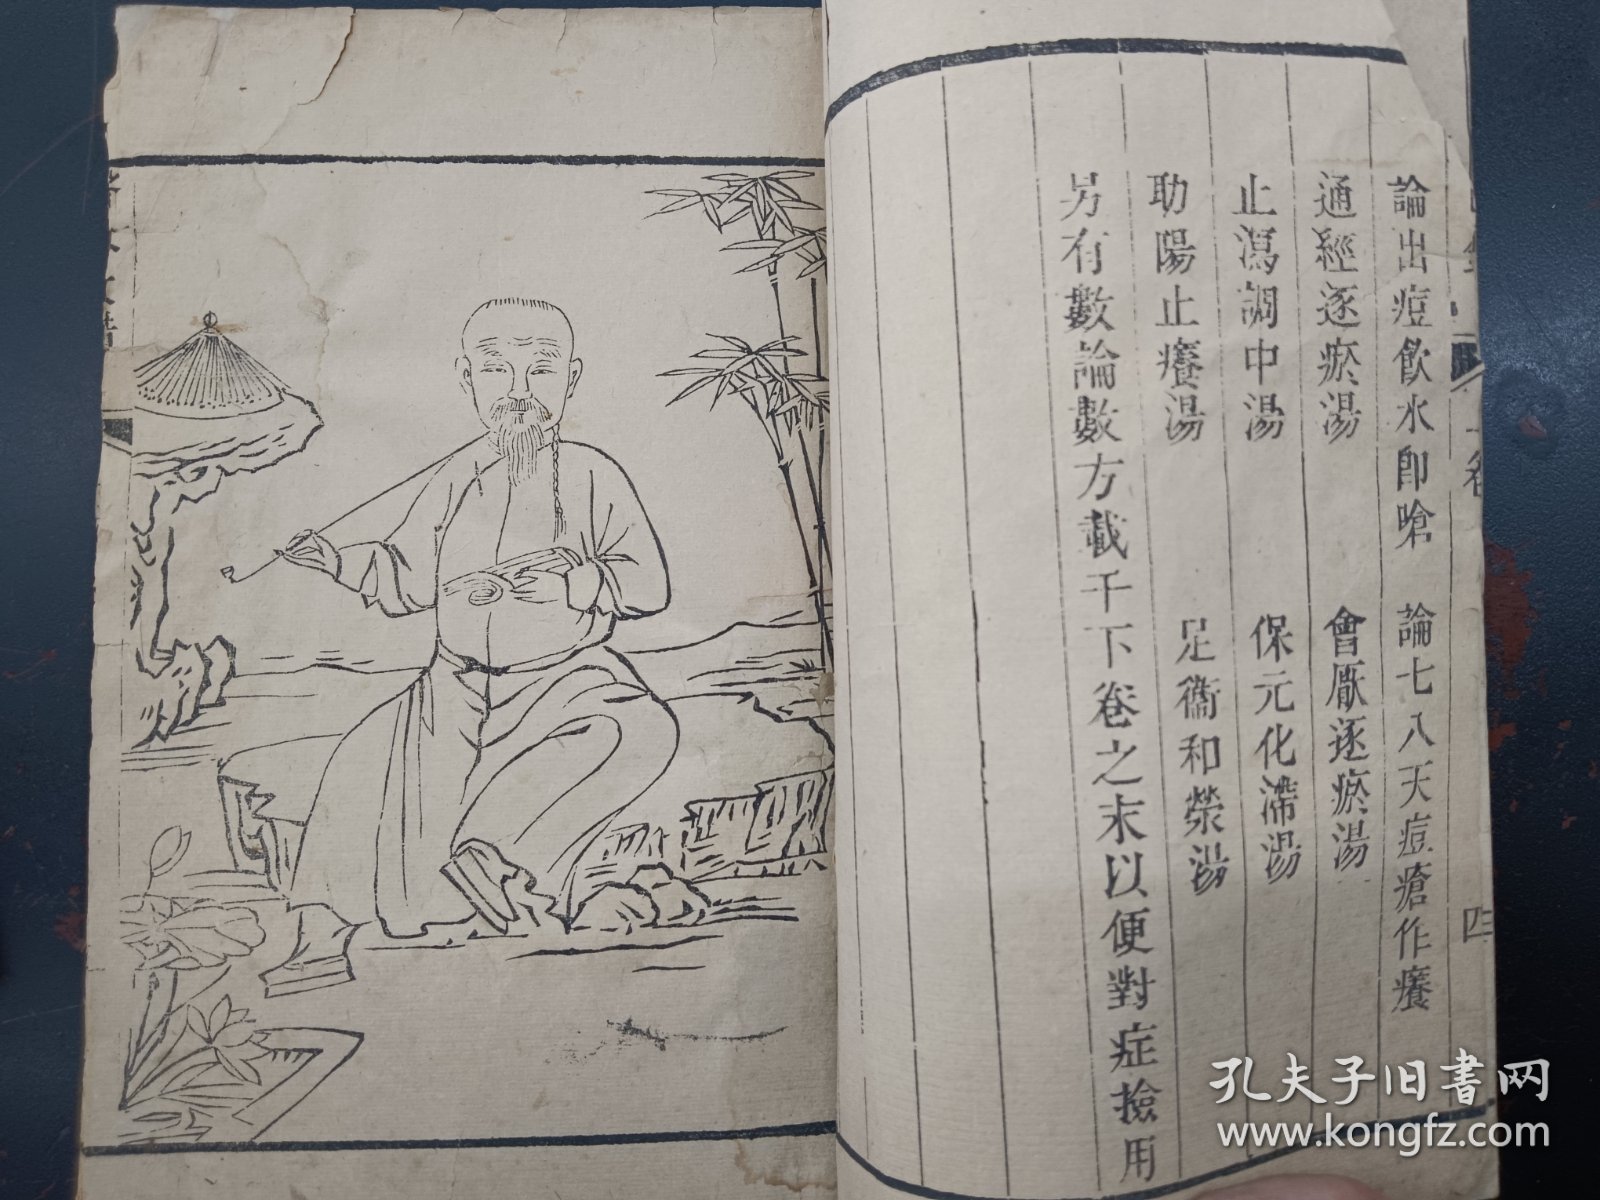 論出痘飲水即嗆 論七八天痘瘡作癢
通經逐瘀湯 會厭逐瘀湯
止瀉調中湯 保元化滯湯
助陽止癢湯 足衞和榮湯
另有數論數方載于下卷之末以便對症撿用
四
孔夫子旧書网
www.kongfz.com